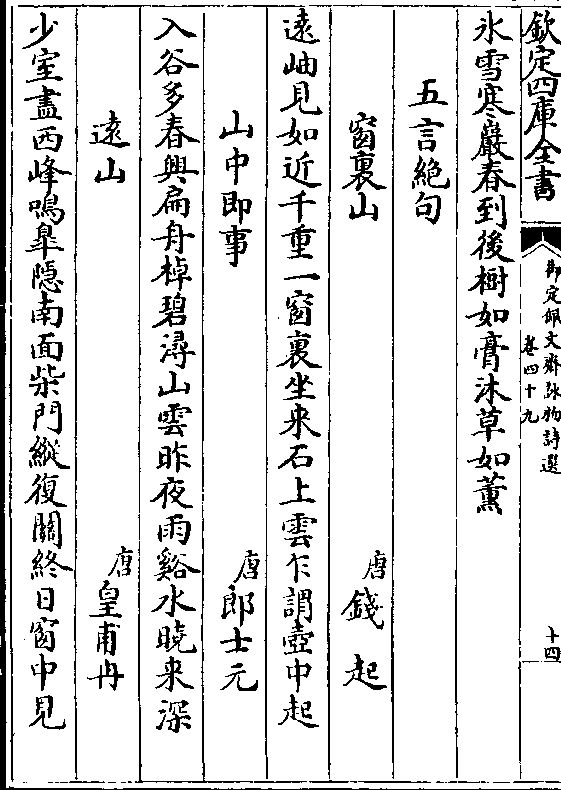 欽定四庫全書
御定佩文齋詠物詩選
卷四十九
十四
氷雪寒巖春到後樹如膏沐草如薰
五言絶句
窗裏山　唐錢起
遠岫見如近千重一窗裏坐来石上雲乍謂壺中起
山中即事　唐郎士元
入谷多春興扁舟棹碧潯山雲昨夜雨谿水曉来深
遠山　唐皇甫冉
少室盡西峰鳴臯隱南面柴門縱復關終日窗中見